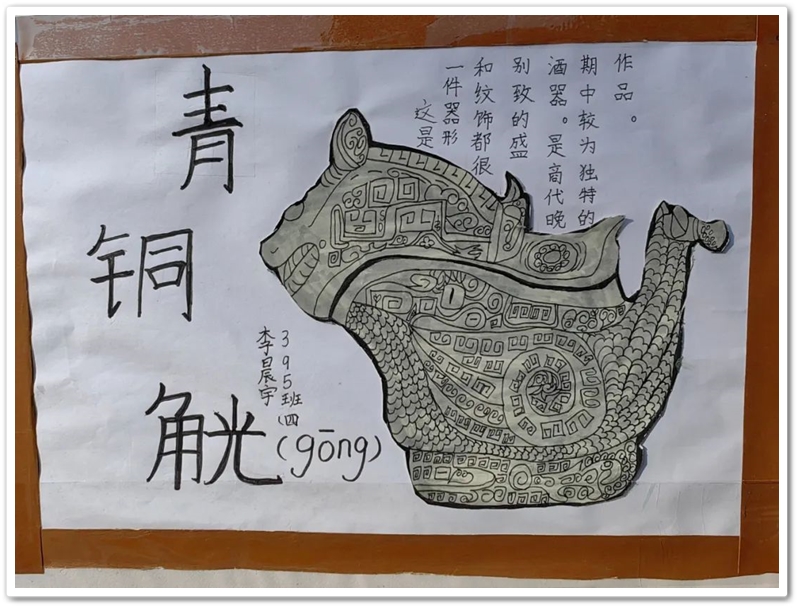 青
铜
觥(gōng)
395班(四
李晨宇
这是
一件器形
和纹饰都很
别致的盛
酒器。是商代晚
期中较为独特的
作品。